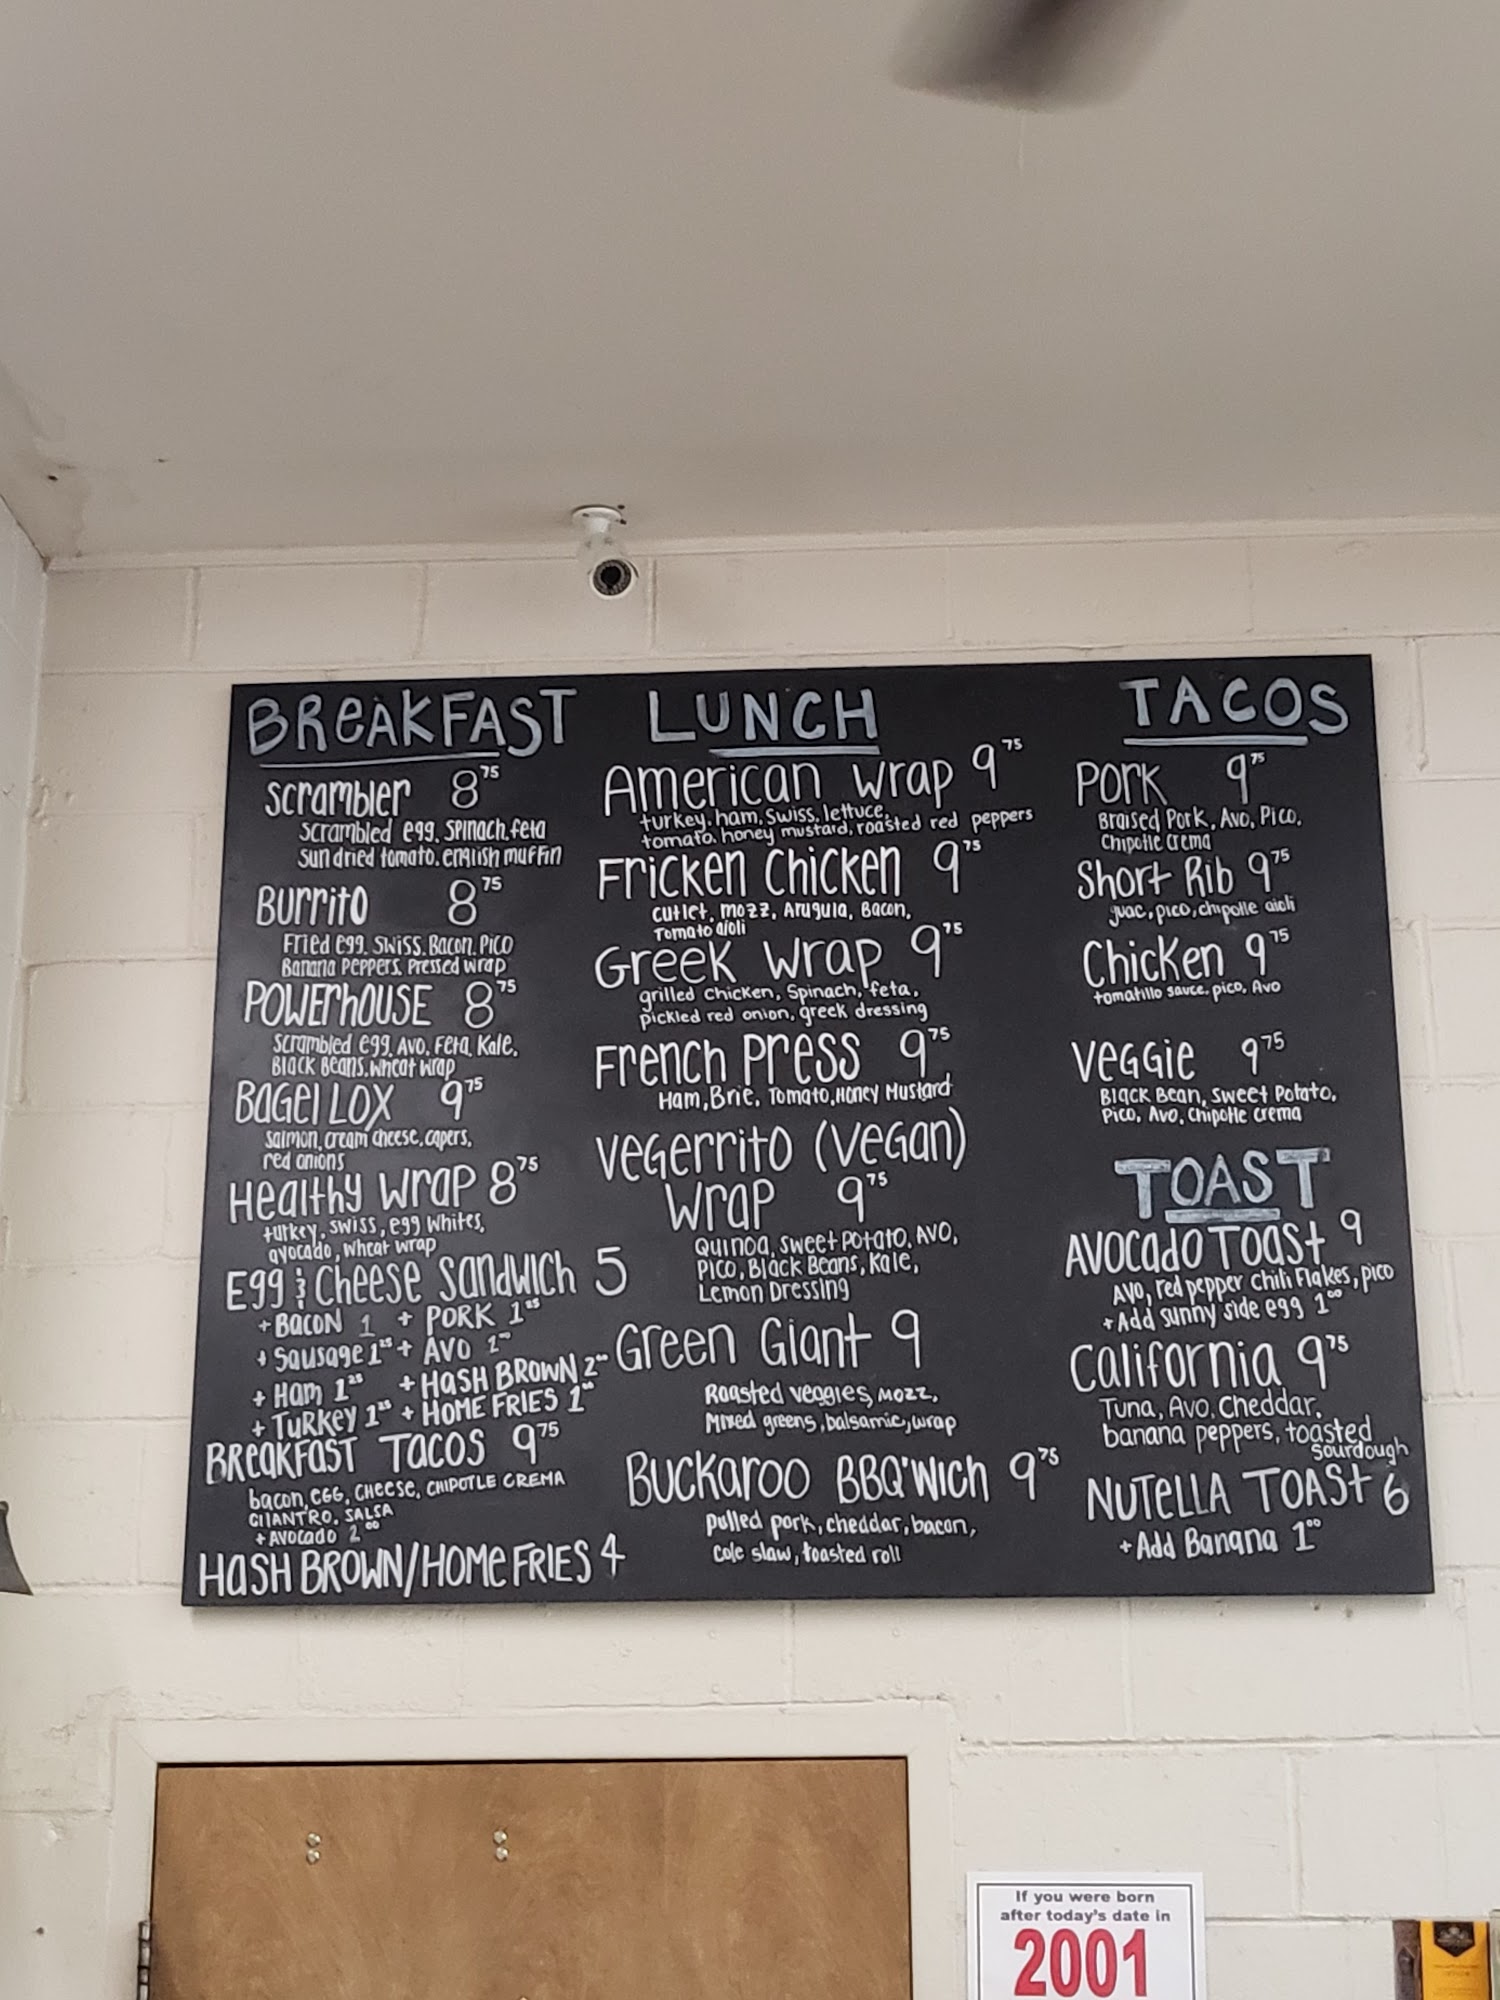 BREAKFAST
Scrambler 8.75
Scrambled egg, spinach, feta
Sun dried tomato, english muffin
Burrito 8.75
Fried egg, Swiss, Bacon, Pico
Banana Peppers, Pressed wrap
POWERHOUSE 8.75
Scrambled egg, Avo, Feta, Kale,
Black Beans, wheat wrap
Bagel LOX 9.75
salmon, cream cheese, capers,
red onions
Healthy Wrap 8.75
turkey, swiss, egg whites,
avocado, wheat wrap
Egg & Cheese Sandwich 5
+ Bacon 1 + PORK 1.25
+ Sausage 1.25 + AVO
+ Ham 1.25 + HASH BROWN 2.00
+ Turkey 1.25 + HOME FRIES
BREAKFAST TACOS 9.75
bacon, egg, cheese, CHIPOTLE CREMA
CILANTRO, SALSA
+ Avocado 2.00
HASH BROWN/HOME FRIES 4
LUNCH
American wrap 9.75
turkey, ham, Swiss, lettuce,
tomato, honey mustard, roasted red peppers
Fricken Chicken 9.75
cutlet, mozz, Arugula, Bacon,
Tomato aioli
Greek wrap 9.75
grilled chicken, Spinach, feta,
pickled red onion, greek dressing
French Press 9.75
Ham, Brie, Tomato, Honey Mustard
VEGERRITO (VEGAN)
WRAP 9.75
Quinoa, sweet potato, AVO,
Pico, Black Beans, Kale,
Lemon Dressing
Green Giant 9
Roasted veggies, mozz,
Mixed greens, balsamic, wrap
BUCKAROO BBQ'WICH 9.75
pulled pork, cheddar, bacon,
cole slaw, toasted roll
TACOS
Pork 9.75
Braised Pork, Avo, Pico,
Chipotle crema
Short Rib 9.75
guac, pico, chipotle aioli
Chicken 9.75
tomatillo sauce, pico, Avo
VEGGIE 9.75
Black Bean, Sweet Potato,
Pico, Avo, Chipotle crema
TOAST
AVOCADO TOAST 9
Avo, red pepper chili flakes, pico
+ Add sunny side egg 1.00
California 9.75
Tuna, Avo, cheddar,
banana peppers, toasted
sourdough
NUTELLA TOAST 6
+ Add Banana 1.00
If you were born
after today's date in
2001